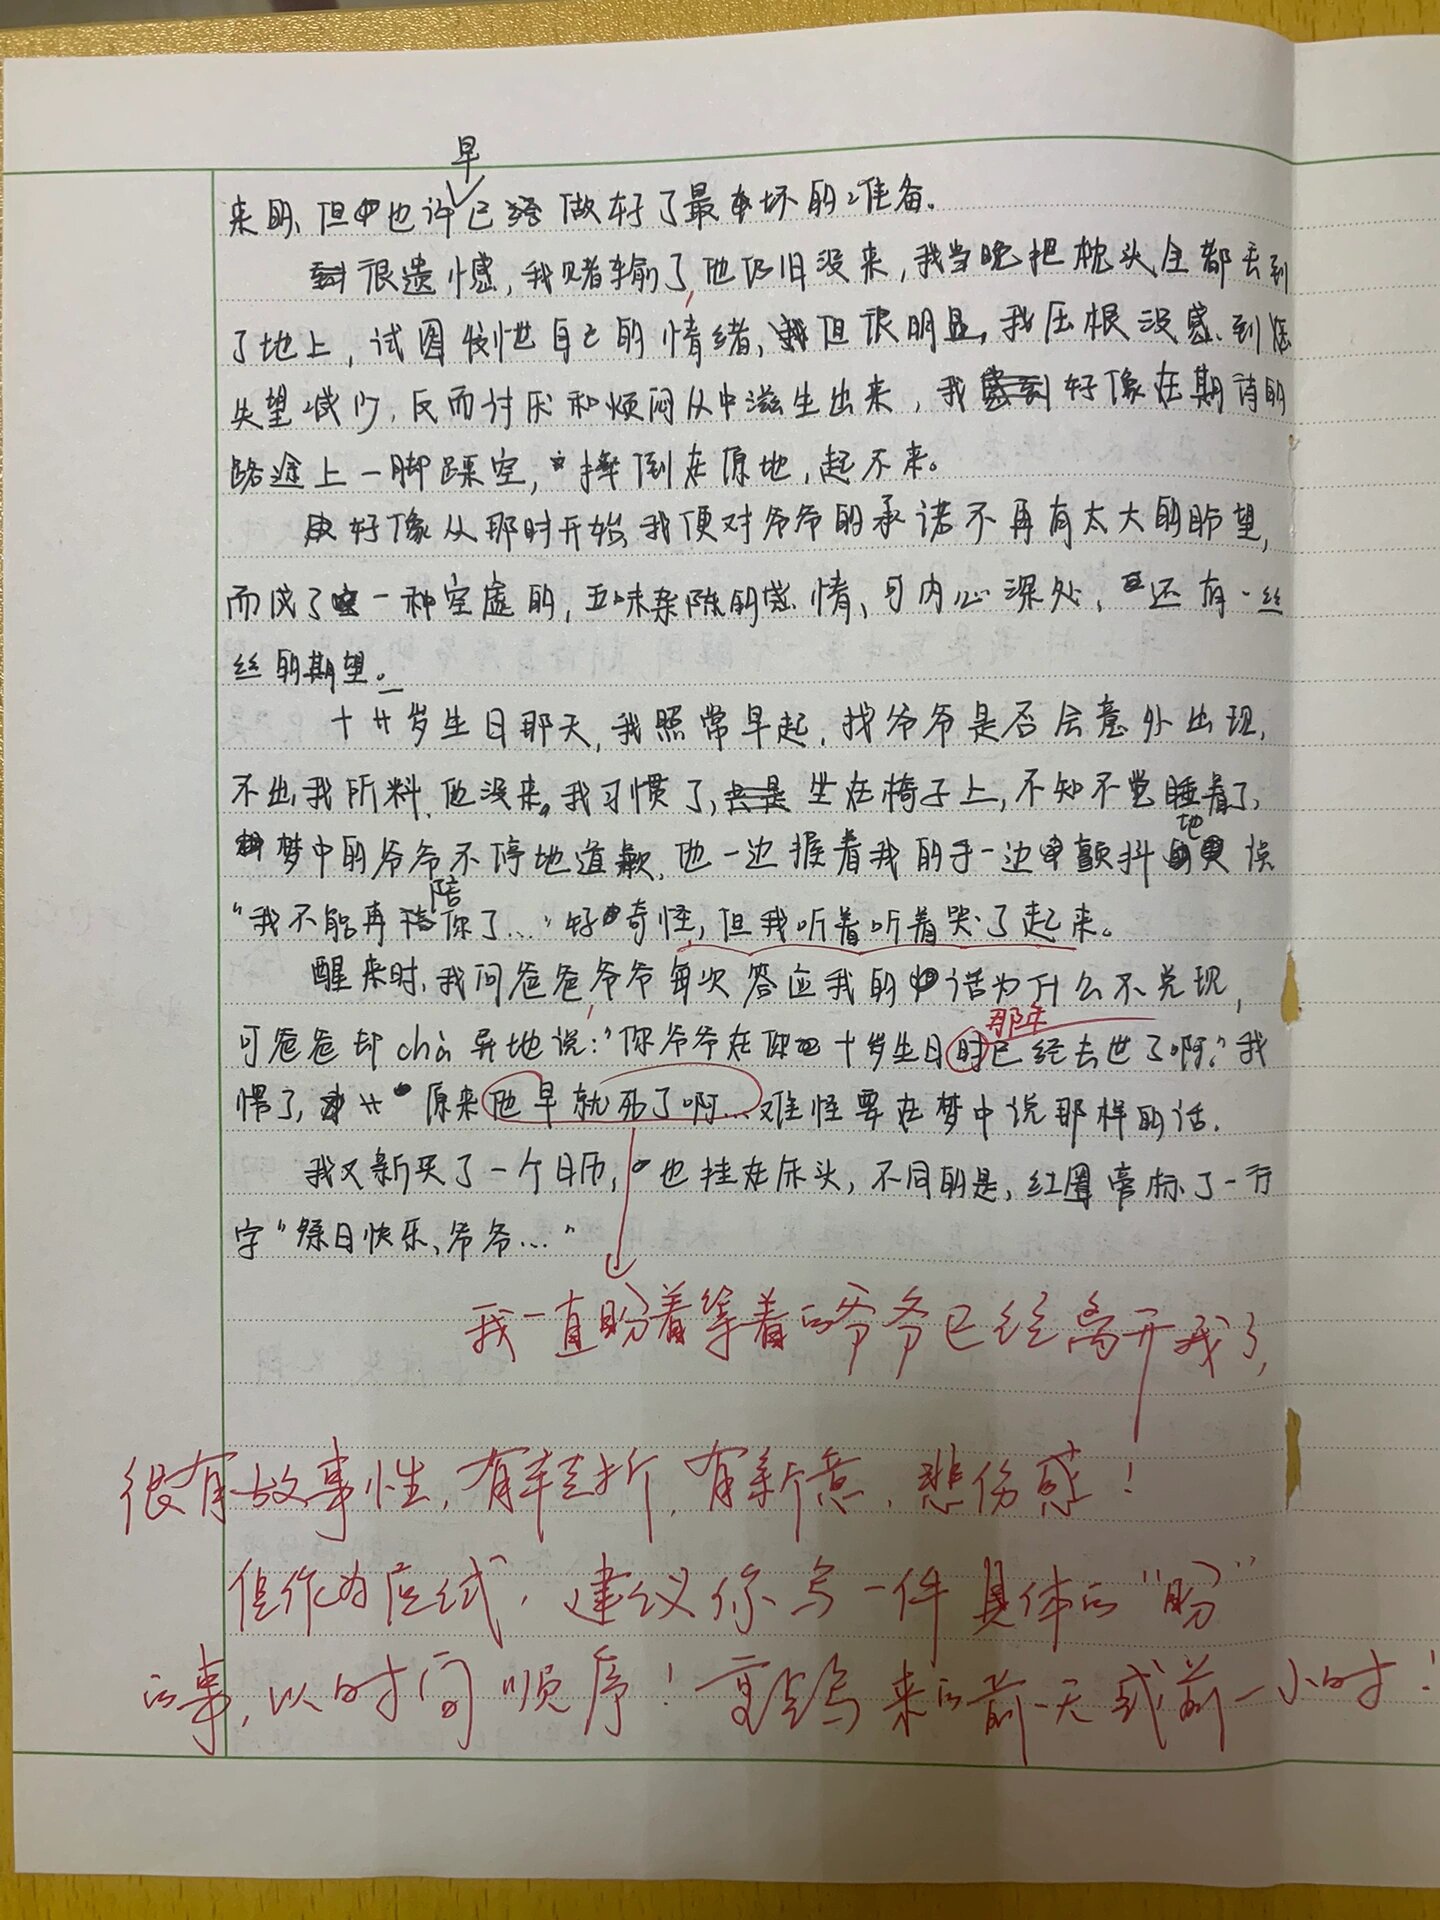 早
来的、但也许已经做好了最坏的准备。
很遗憾,我赌输了,他仍旧没来,我当晚把枕头全都丢到
了地上,试图发泄自己的情绪,但很明显,我压根没感到
失望减少,反而讨厌和烦闷从中滋生出来,我好像在期待的
路途上一脚踩空,摔倒在原地,起不来。
好像从那时开始,我便对爷爷的承诺不再有太大的盼望,
而成了一种空虚的,五味杂陈的感情,可内心深处,还有一丝
丝的期望。
十廿岁生日那天,我照常早起,找爷爷是否会意外出现,
不出我所料,他没来。我习惯了,坐在椅子上,不知不觉睡着了,
梦中的爷爷不停地道歉,他一边握着我的手一边颤抖地
“我不能再陪你了...”好奇怪,但我听着听着哭了起来。
醒来时,我问爸爸,爷爷每次答应我的话为什么不兑现,
那年
可爸爸却chà异地说:“你爷爷在你十岁生日时已经去世了啊?”我
愣了,原来他早就死了啊...难怪要在梦中说那样的话.
我又新买了一个日历,也挂在床头,不同的是,红圈旁标了一行
字“祭日快乐、爷爷...”
我一直盼着等着的爷爷已经离开我了,
很有故事性,有转折,有新意,悲伤感!
但作为应试,建议你写一件具体的“盼”
的事,以时间顺序!重点写来的前一天或前一小时!